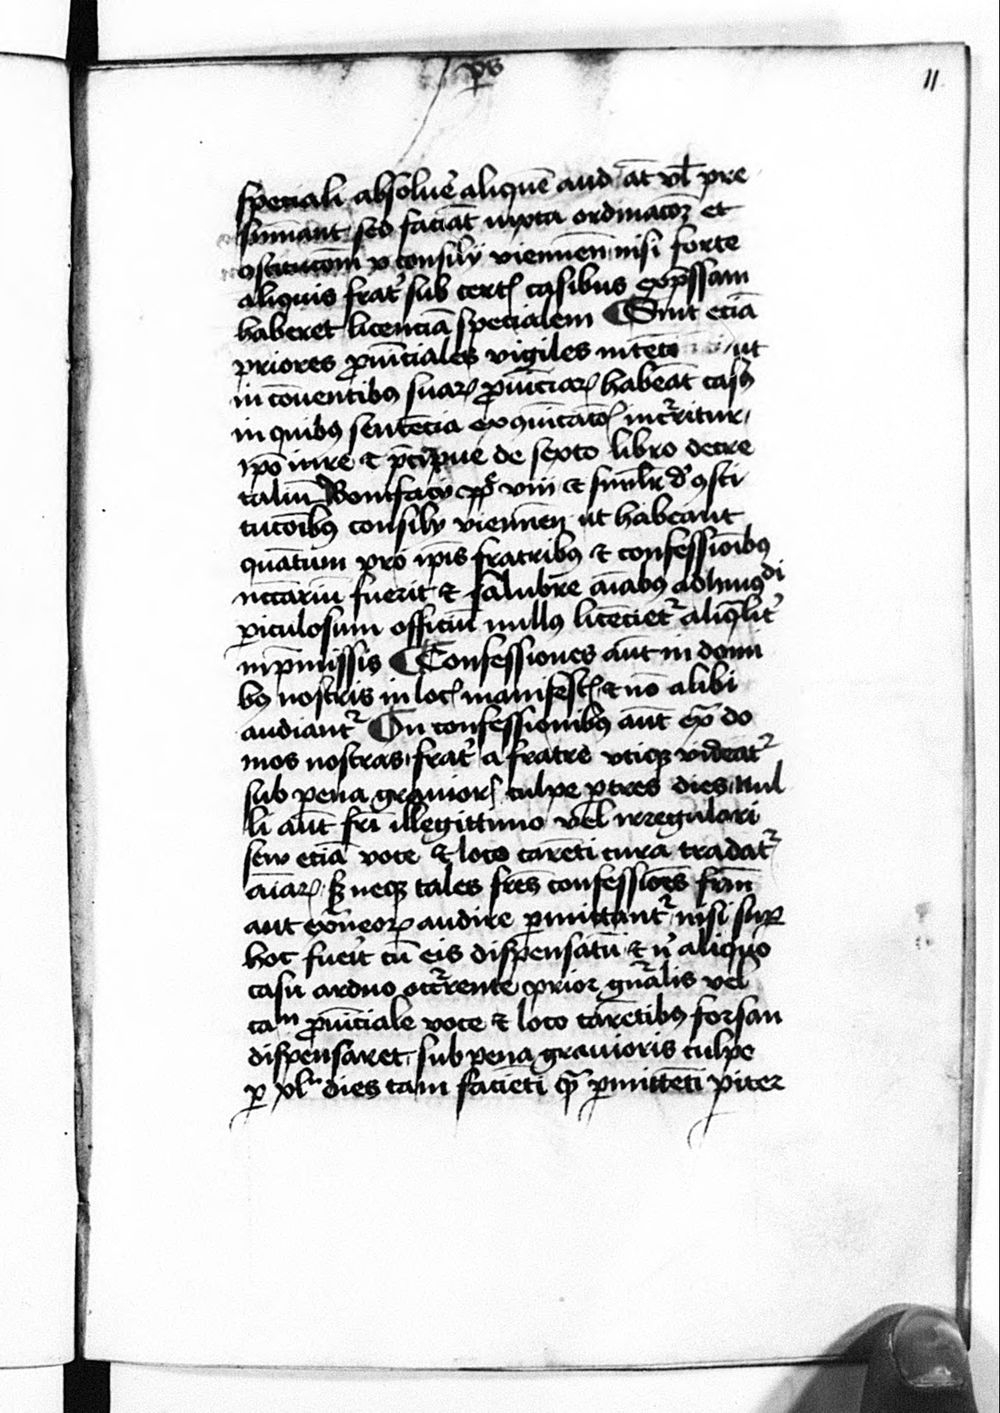 ps
11
speciali absoluē aliquē aud āt vl pre
sumant sed faciāt iuxta ordinacōȝ et
ɔstitucōm v consilij viennen nisi forte
aliquis frat sub certꝭ casibus exp̄ssam
haberet licenciā specialem Sint eciā
priores ꝓuīciales vigiles ut
in cōuentibꝰ suaꝝ ꝓuīciaꝝ habeāt casꝰ
in quibꝰ sentēcia exɔmicacōꝭ incͬritur
ip̄o iure ⁊ p̄cipue de sexto libro decre
taliū Bonifacij pp viii ⁊ simlr d ɔsti
tucōibꝰ consilij viennen ut habeant
quātum pro ip̄is fratribꝰ ⁊ confessioībꝰ
nccāriū fuerit ⁊ salubre aīabꝰ adhuiꝰdi
ꝑiculosum officiū nullꝰ licēcietͬ aliqlitͬ
in p̄missis Confessiones aūt in domi
bꝰ nostris in locꝭ manifestꝭ ⁊ nō alibi
audiantͬ In confessionibꝰ aūt ext do
mos nostras frat a fratre vtiqȝ videatͬ
sub pena grauiorꝭ culpe ꝑ tres dies Nul
li aūt fri illegittimo vel irregulari
sew eciā voce ⁊ loco carēti cura tradatͬ
aīaꝝ sȝ neqȝ tales fres confessiōes frm̄
aut exͣneoꝝ audire ꝑmittantͬ nisi suꝑ
hoc fuerit cū eis dispensatū ⁊ si aliquo
casu arduo occͬrente prior gn̄alis vel
cam ꝓuīciale voce ⁊ loco carētibꝰ forsan
dispensaret sub pena grauioris culpe
ꝑ xl dies tam faciēti qͣ ꝑmittēti ꝑiter